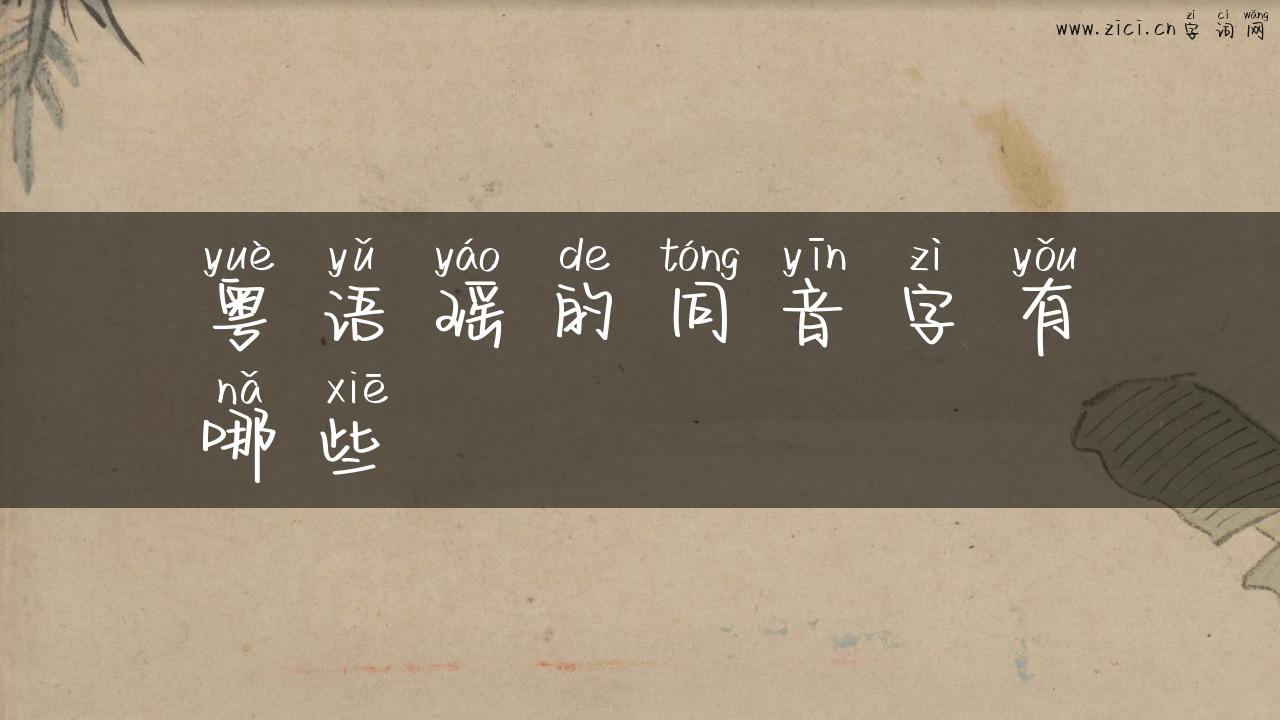 zì cí wǎng
www.zici.cn 字 词 网
yuè yǔ yáo de tóng yīn zì yǒu
粤 语 瑶 的 同 音 字 有
nǎ xiē
哪 些